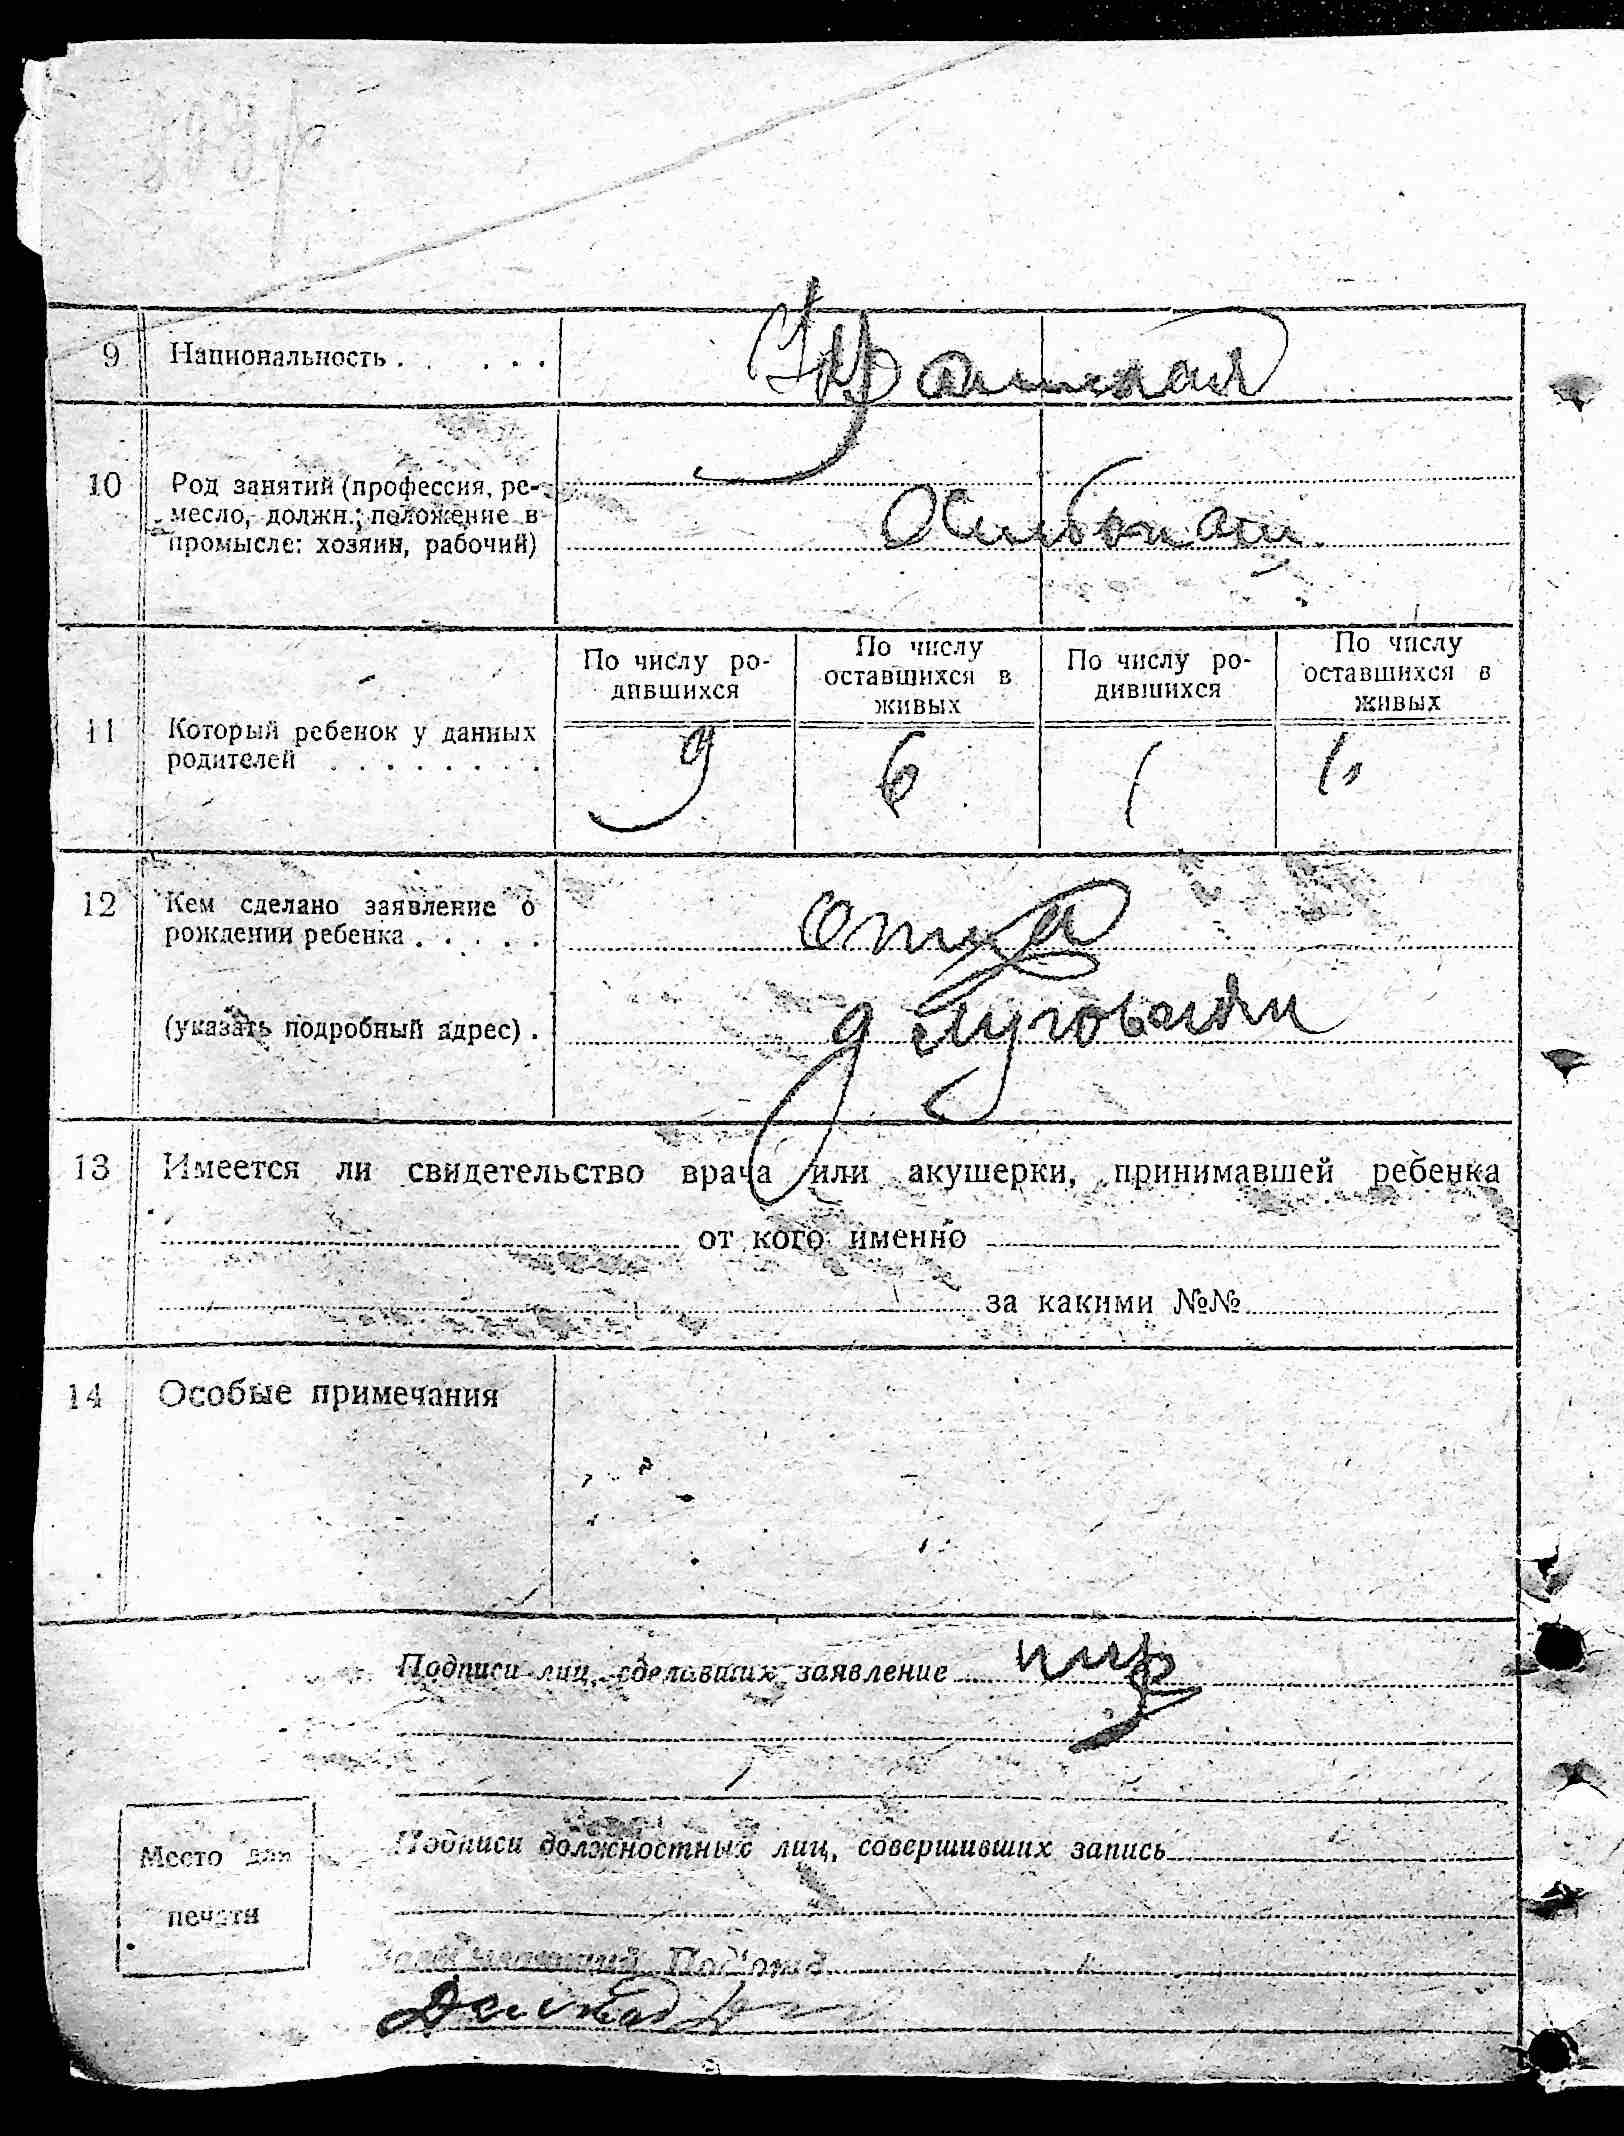 9 Национальность . . . . . Украинская
10 Род занятий (профессия, ре-
месло, должн.; положение в
промысле: хозяин, рабочий)
По числу ро-
дившихся
По числу
оставшихся в
живых
По числу ро-
дившихся
По числу
оставшихся в
живых
11 Который ребенок у данных
родителей . . . . . . . . 9 6 1
12 Кем сделано заявление о
рождении ребенка . . . . . отца
(указать подробный адрес) . д
13 Имеется ли свидетельство врача или акушерки, принимавшей ребенка
от кого именно
за какими №№
14 Особые примечания
Подписи лиц, сделавших заявление
Место для
печати
Подписи должностных лиц, совершивших запись